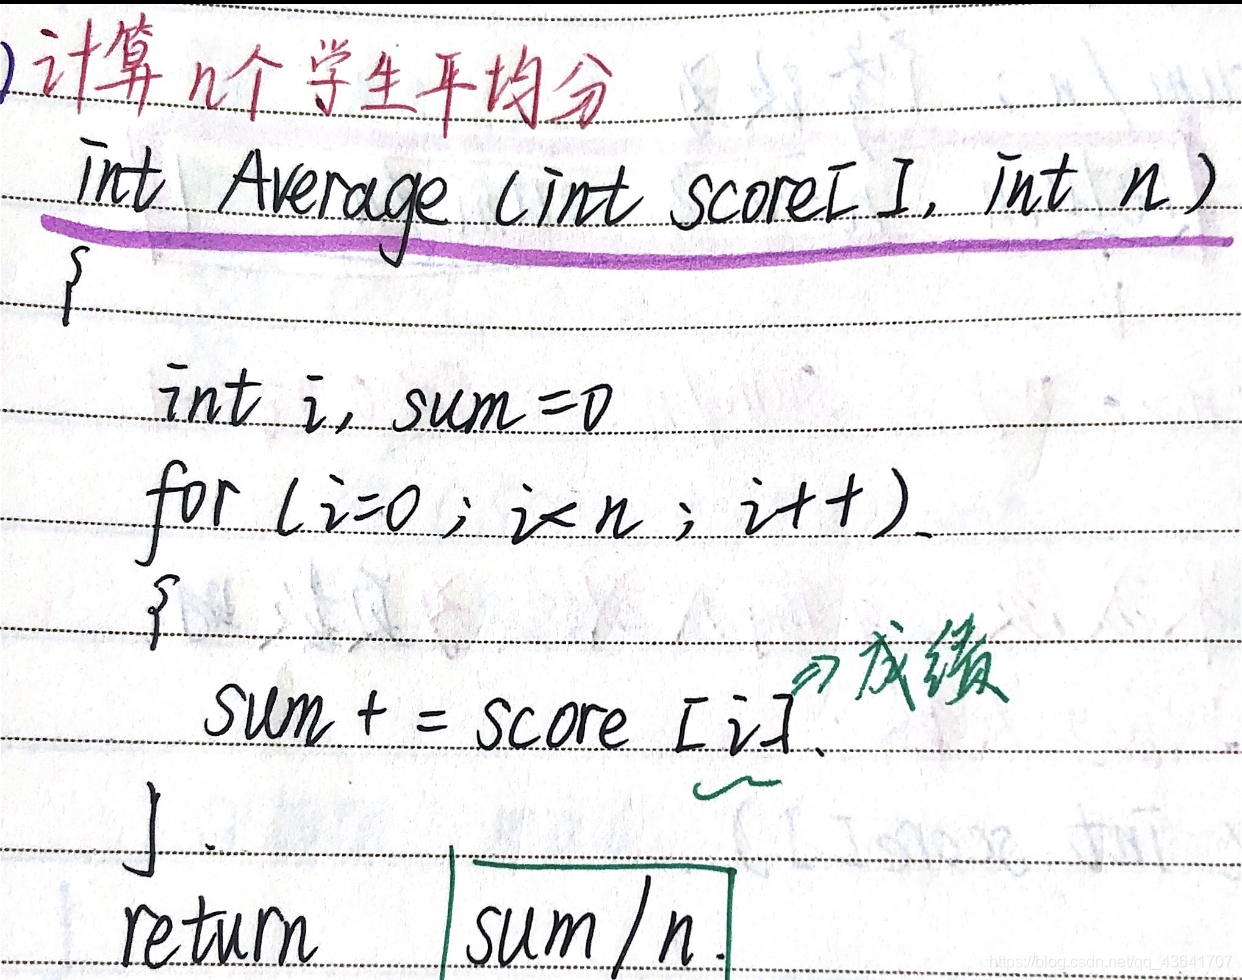 )计算 n个 学生平均分
int Average (int score[ ], int n)
{
int i, sum=0
for (i=0; i<n; i++)
{
sum += score [i]. ⇒成绩
}
return sum/n.
https://blog.csdn.net/qq_43641707